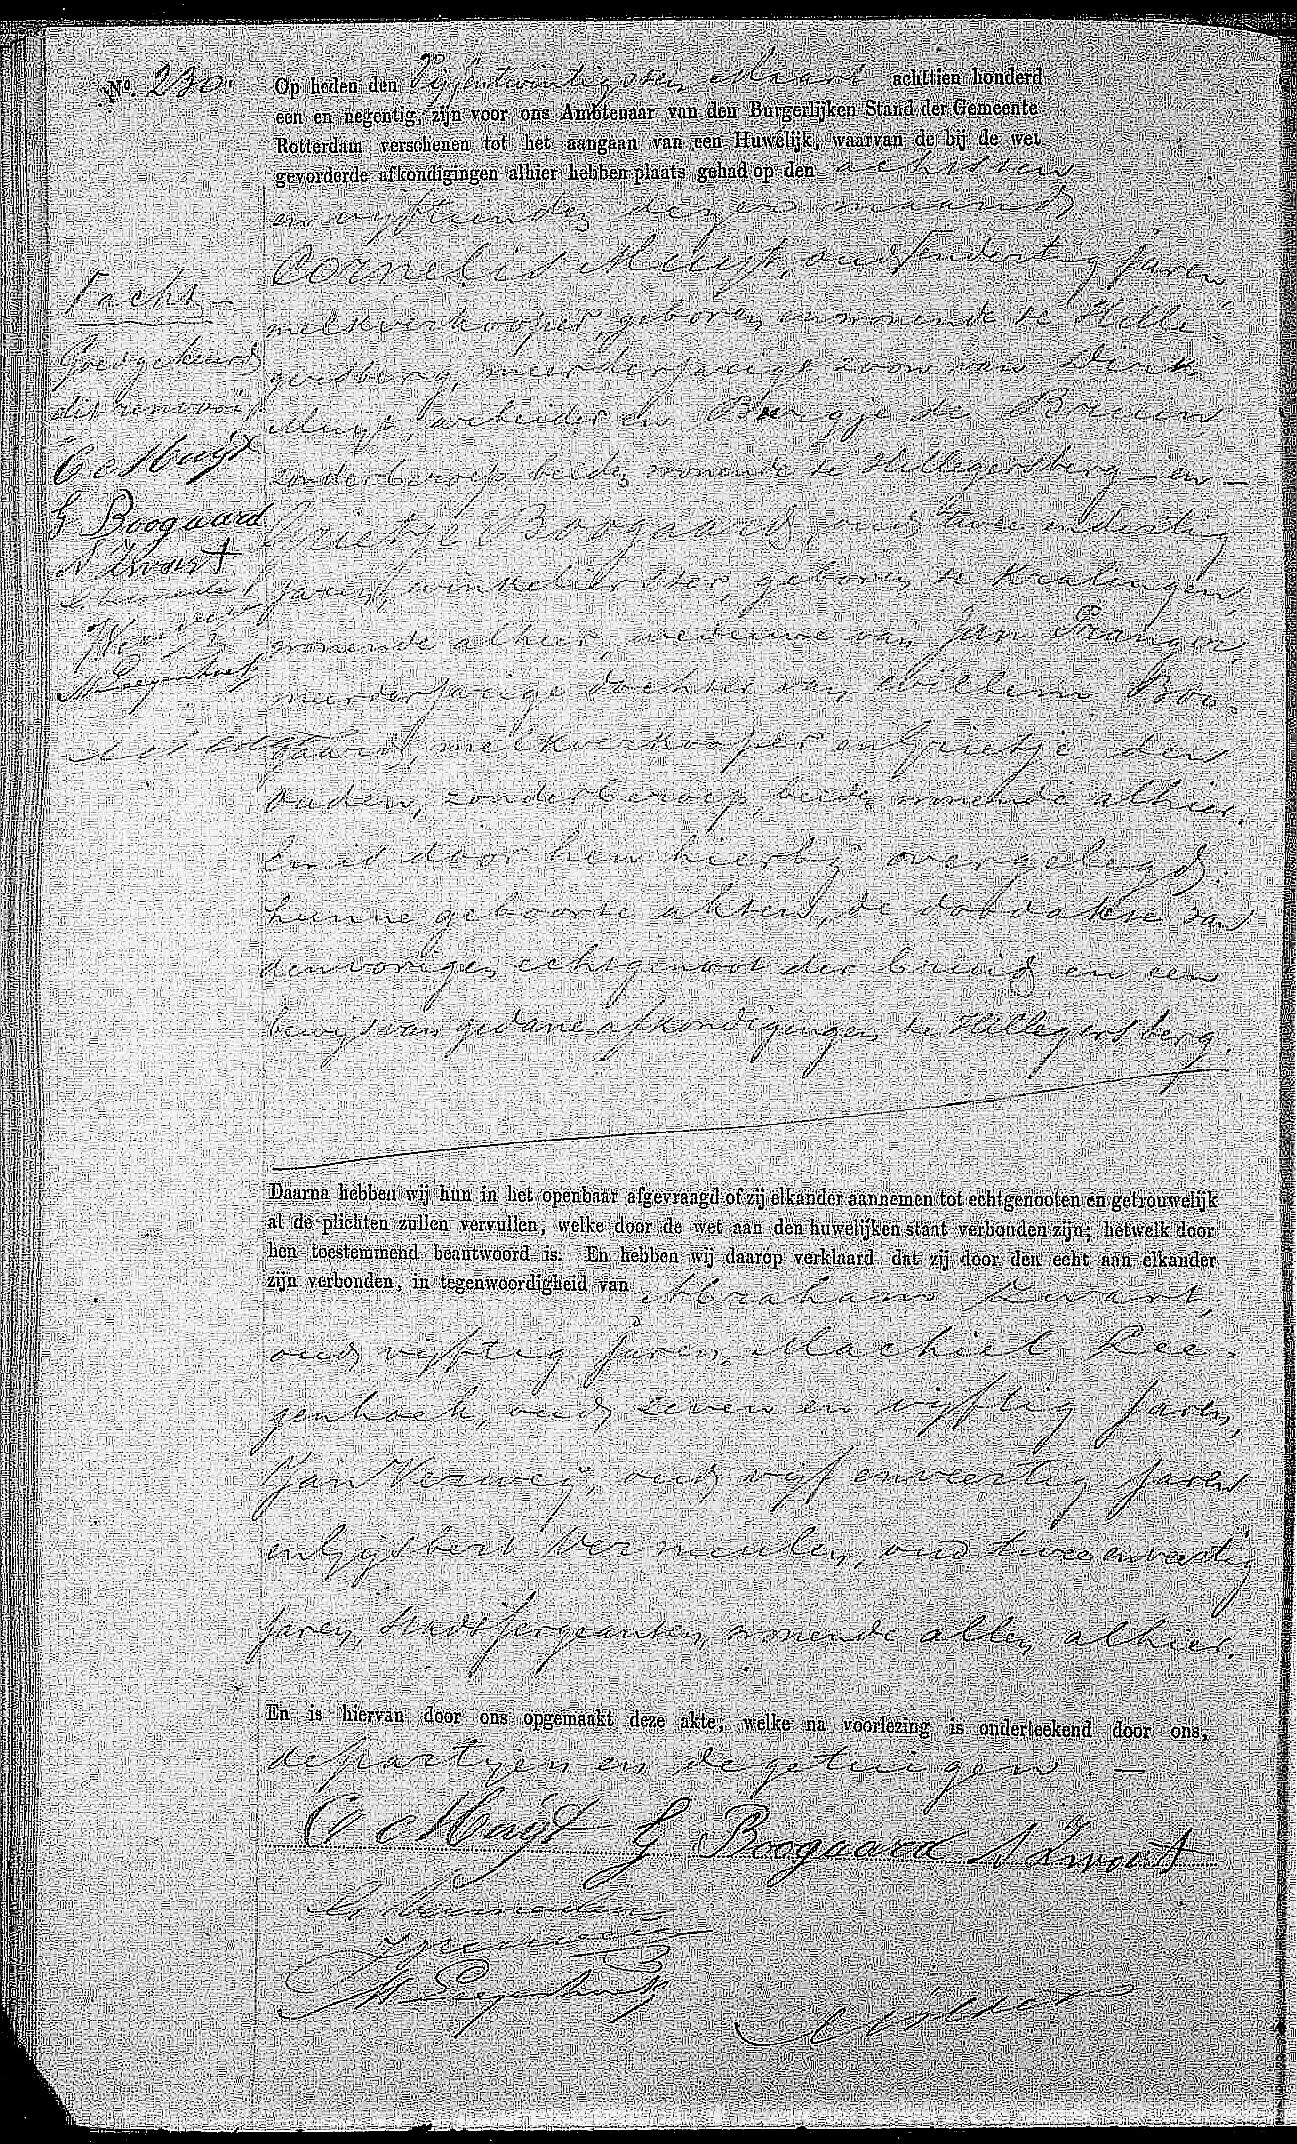 No. 230.
Op heden den Vijfentwintigsten Maart achttien honderd
een en negentig, zijn voor ons Ambtenaar van den Burgerlijken Stand der Gemeente
Rotterdam verschenen tot het aangaan van een Huwelijk, waarvan de bij de wet
gevorderde afkondigingen alhier hebben plaats gehad op den achtsten
en vijftienden dezer maand
Cornelis Muijt, oud dertig jaren
melkverkooper, geboren en wonende te Hille-
gersberg, meerderjarige zoon van Dirk
Muijt, arbeider en Burgje de Bruin
zonder beroep beiden wonende te Hillegersberg – en –
Grietje Boogaard, oud twee en dertig
jaren, winkelierster, geboren te Kralingen,
wonende alhier, weduwe van Jan Pranger
meerderjarige dochter van Willem Boo-
gaard, melkverkooper en Grietje den
Ouden, zonder beroep, beiden wonende alhier.
En is door hen hierbij overgelegd
hunne geboorte akten, de doodakte van
den vorigen echtgenoot der bruid en een
bewijs van gedane afkondigingen te Hillegersberg.
Goedgekeurd
dit renvooi
C Muijt
G Boogaard
A Zwart
M Regenhoek
Daarna hebben wij hun in het openbaar afgevraagd of zij elkander aannemen tot echtgenooten en getrouwelijk
al de plichten zullen vervullen, welke door de wet aan den huwelijken staat verbonden zijn; hetwelk door
hen toestemmend beantwoord is. En hebben wij daarop verklaard dat zij door den echt aan elkander
zijn verbonden, in tegenwoordigheid van Abraham Zwart,
oud vijftig jaren, Machiel Ree-
genhoek, oud zeven en vijftig jaren,
Jan Verweij, oud vijf en veertig jaren
en Gijsbert Vermeulen, oud twee en veertig
jaren, Stadssergeanten, wonende allen alhier.
En is hiervan door ons opgemaakt deze akte, welke na voorlezing is onderteekend door ons,
de partijen en de getuigen –
C Muijt G Boogaard A Zwart
G Vermeulen
J Verweij
M Regenhoek